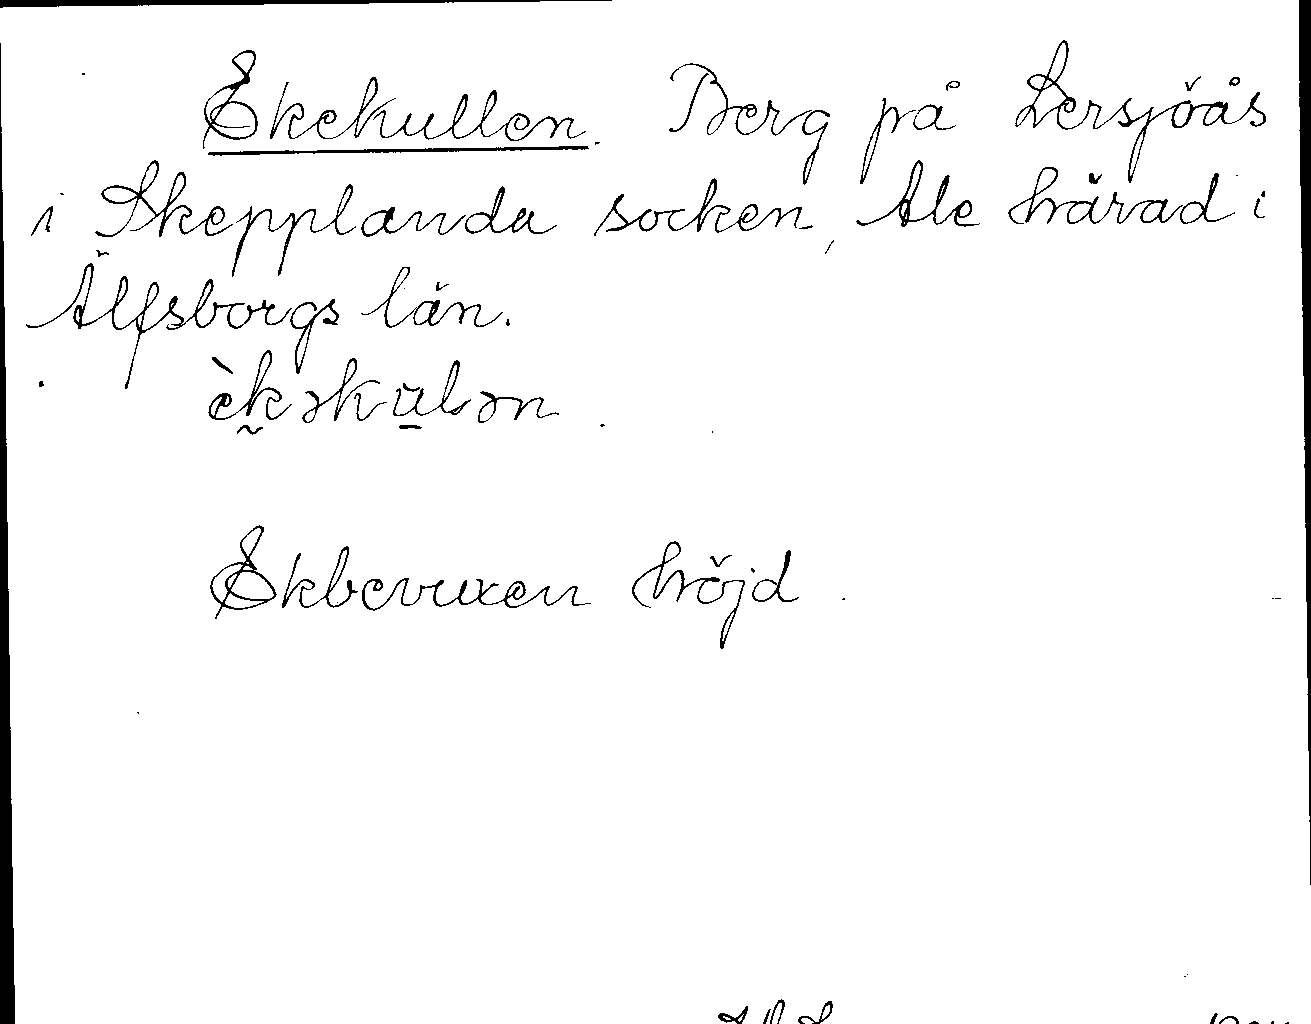 Ekekullen. Berg på Lersjöås
i Skepplanda socken, Ale härad i
Älfsborgs län.
èk̰əkŭ̱lən.
Ekbevuxen höjd.